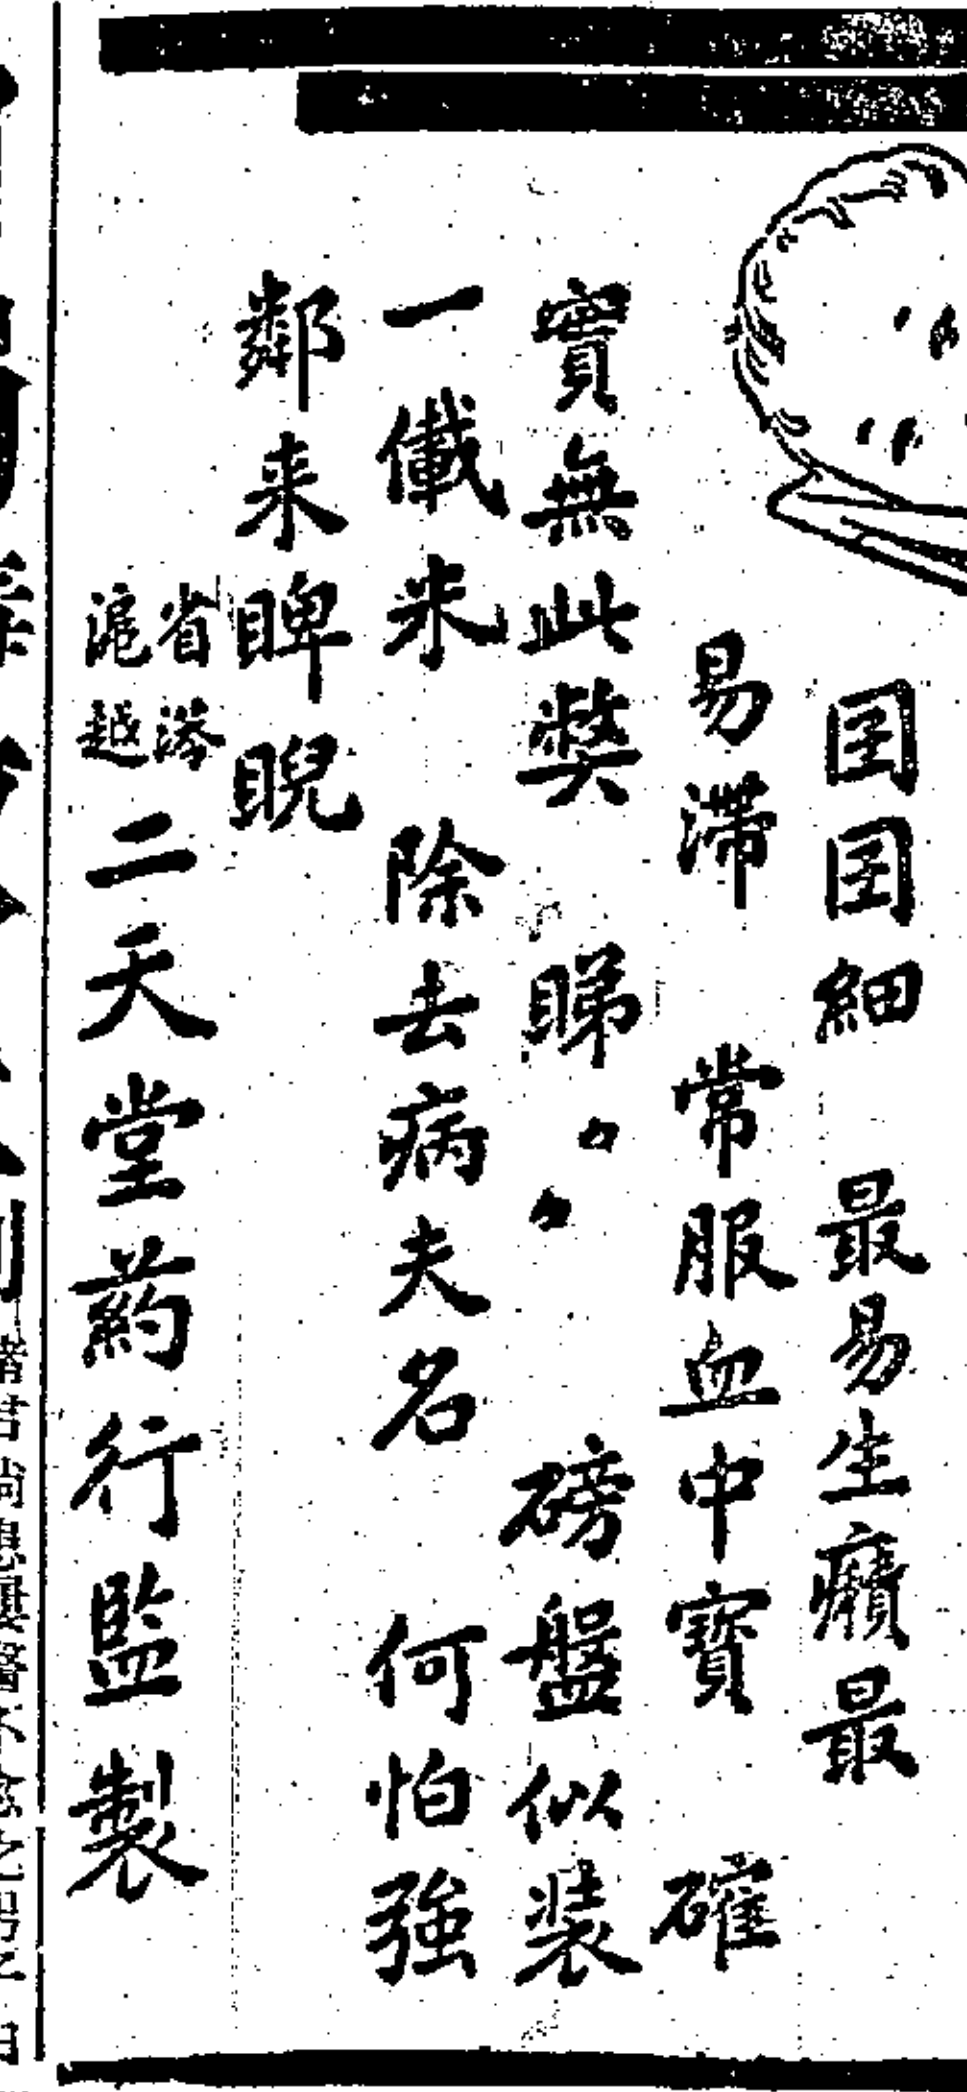 囝囝細 最易生癪最
易滯 常服血中寶 確
實無此獘 睇々 磅盤似裝
一儎米 除去病夫名 何怕強
鄰来睥睨
省港
滬越
二天堂葯行監製